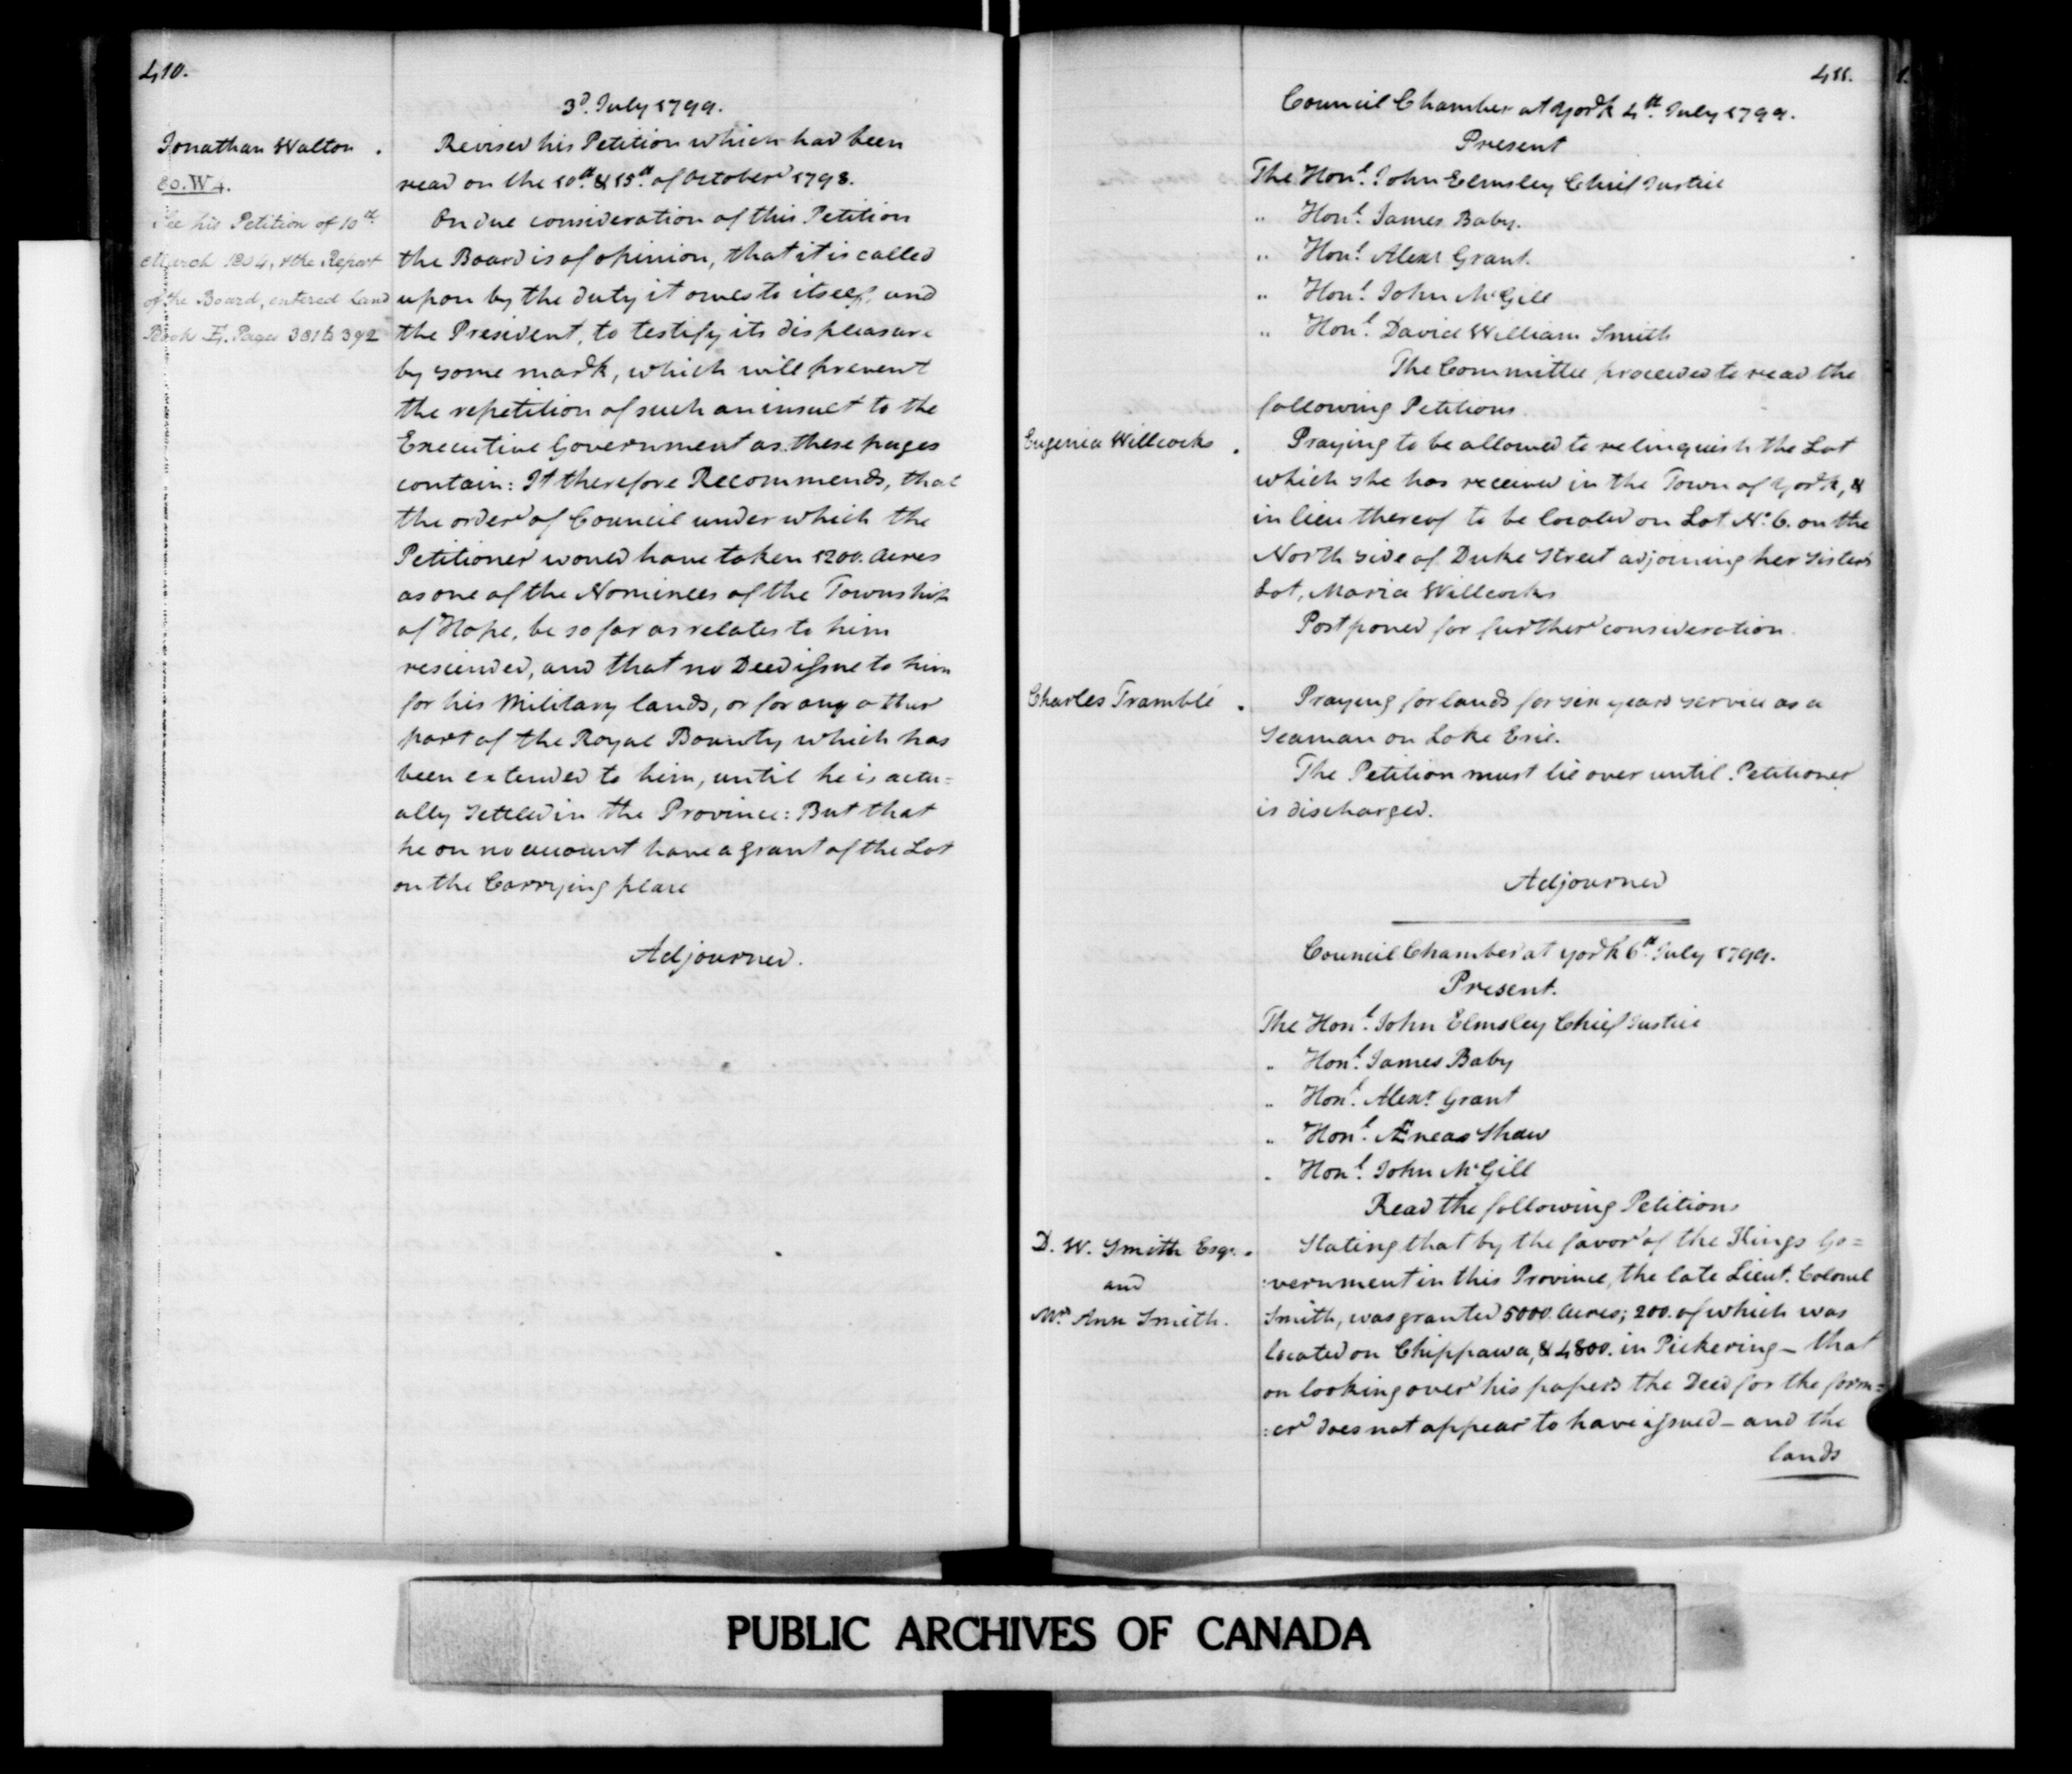 410.
3d. July 1799.
Jonathan Walton.
80. W 4.
See his Petition of 10th
March 1804, & the Report
of the Board, entered Land
Book F. Pages 381 to 392
Revised his Petition which had been
read on the 10th. & 15th. of October 1798.
On due consideration of this Petition
the Board is of opinion, that it is called
upon by the duty it owes to itself, and
the President, to testify its displeasure
by some mark, which will prevent
the repetition of such an insult to the
Executive Government as these pages
contain: It therefore Recommends, that
the order of Council under which the
Petitioner would have taken 1200. Acres
as one of the Nominees of the Township
of Hope, be so far as relates to him
rescinded, and that no Deed issue to him
for his Military lands, or for any other
part of the Royal Bounty which has
been extended to him, until he is actu=
ally settled in the Province: But that
he on no account have a grant of the Lot
on the Carrying place
Adjourned.
411.
Council Chamber at York 4th. July 1799.
Present
The Honl. John Elmsley Chief Justice
" Honl. James Baby.
" Honl. Alexr Grant.
" Honl. John McGill
" Honl. David William Smith
The Committee proceeded to read the
following Petitions.
Eugenia Willcocks.
Praying to be allowed to relinquish the Lot
which she has received in the Town of York, &
in lieu thereof to be located on Lot No. 6. on the
North side of Duke Street adjoining her sister's
Lot, Maria Willcocks
Postponed for further consideration.
Charles Tramblé.
Praying for lands for six years service as a
Seaman on Lake Erie.
The Petition must lie over until Petitioner
is discharged.
Adjourned
Council Chamber at York 6th. July 1799.
Present.
The Honl. John Elmsley Chief Justice
" Honl. James Baby
" Honl. Alexr. Grant
" Honl. Æneas Shaw
" Honl. John McGill
Read the following Petitions
D. W. Smith Esqr.
and
Mrs Ann Smith.
Stating that by the favor of the Kings Go=
:vernment in this Province, the late Lieut. Colonel
Smith, was granted 5000. Acres; 200. of which was
located on Chippawa, & 4800. in Pickering – that
on looking over his papers the Deed for the form=
:er does not appear to have issued – and the
lands
PUBLIC ARCHIVES OF CANADA